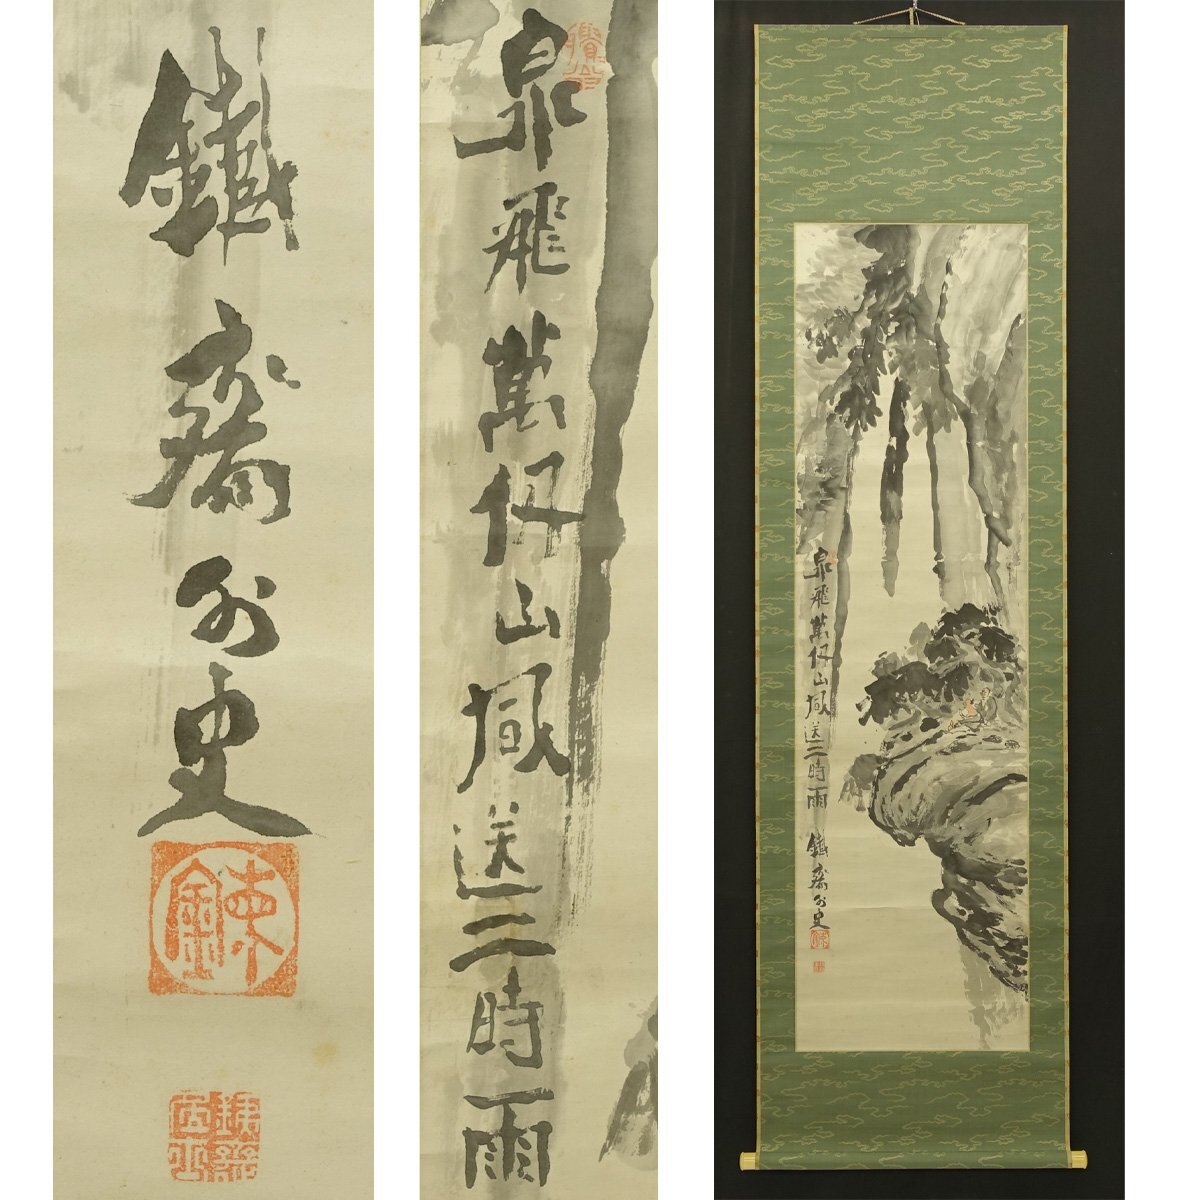 鐵齋外史
泉飛萬仞山風送三時雨
泉飛萬仞山風送三時雨 鐵齋外史